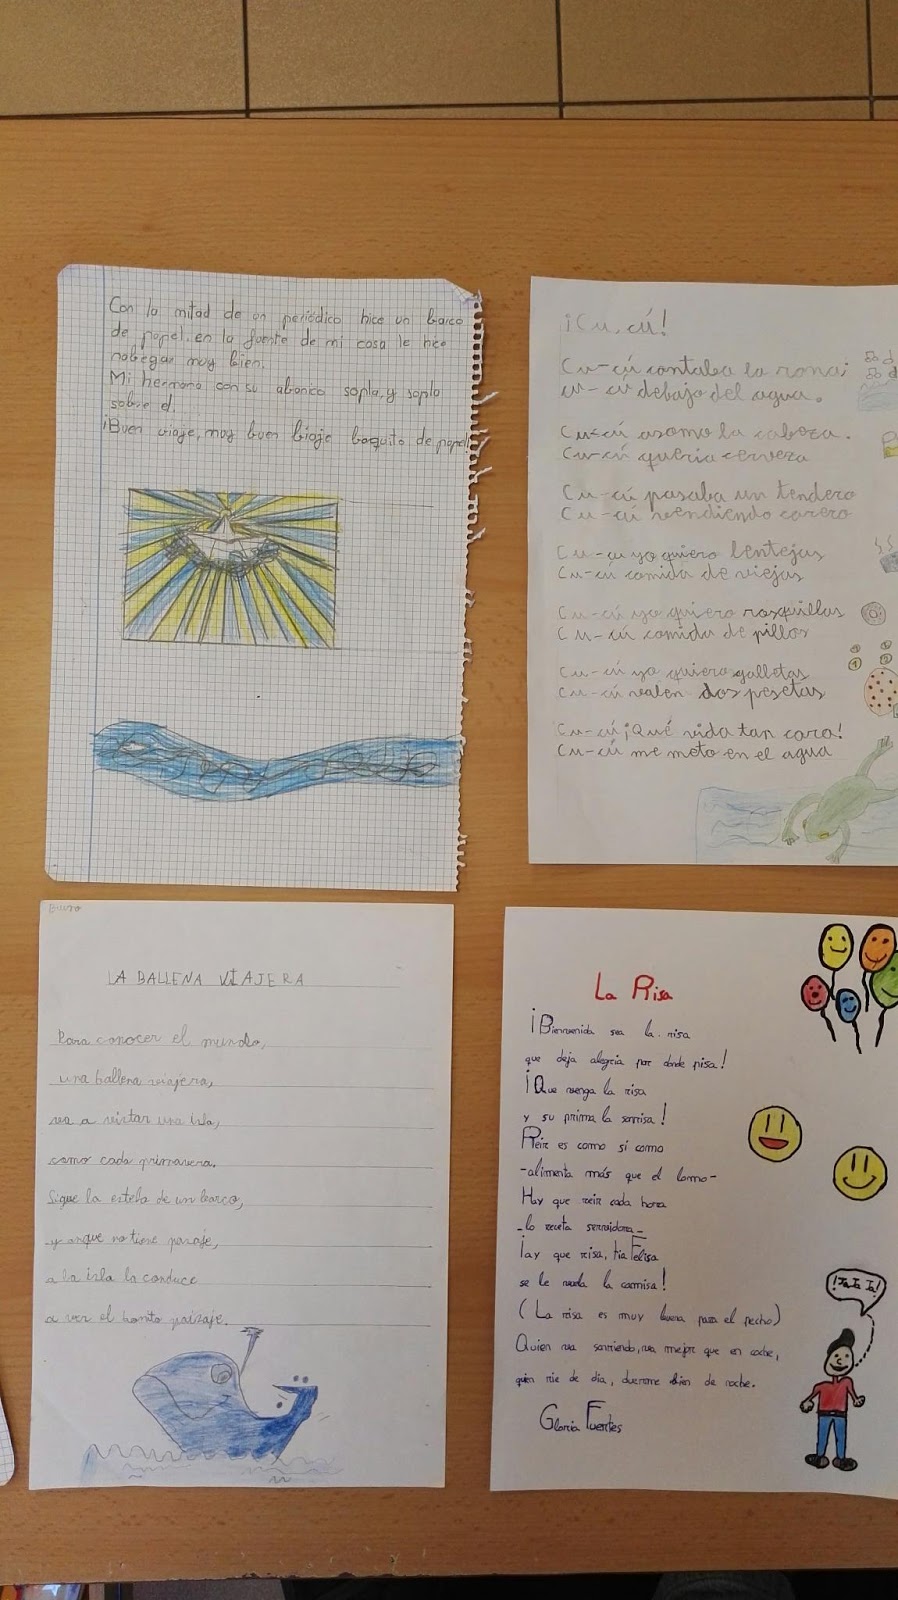 Con la mitad de un periódico hice un barco
de papel, en la fuente de mi casa le hice
nabegar muy bien.
Mi hermana con su abanico sopla, y sopla
sobre el.
¡Buen viaje, muy buen biaje baquito de papel
¡Cu, cú!
Cu-cú cantaba la rana;
cu-cú debajo del agua.
Cu-cú asomo la cabeza.
Cu-cú quería cerveza
Cu-cú pasaba un tendero
Cu-cú vendiendo carero
Cu-cu yo quiero lentejas
Cu-cú comida de viejas
Cu-cú yo quiero rosquillas
Cu-cú comida de pillos
Cu-cú yo quiero galletas
Cu-cú valen dos pesetas
Cu-cú ¡Qué vida tan cara!
Cu-cú me meto en el agua
LA BALLENA VIAJERA
Para conocer el mundo,
una ballena viajera,
va a visitar una isla,
como cada primavera.
Sigue la estela de un barco,
y anque no tiene pasaje,
a la isla la conduce
a ver el bonito paizaje.
La Risa
¡Bienvenida sea la risa
que deja alegria por donde pisa!
¡Que venga la risa
y su prima la sonrisa!
Reir es como si como
-alimenta más que el lomo-
Hay que reir cada hora
-la receta servidora-
¡ay que risa, tia Felisa
se le rueda la camisa!
(La risa es muy buena para el pecho)
Quien va sonriendo, va mejor que en coche,
quien rie de dia, duerme bien de noche.
Gloria Fuertes
¡Ja Ja Ja!